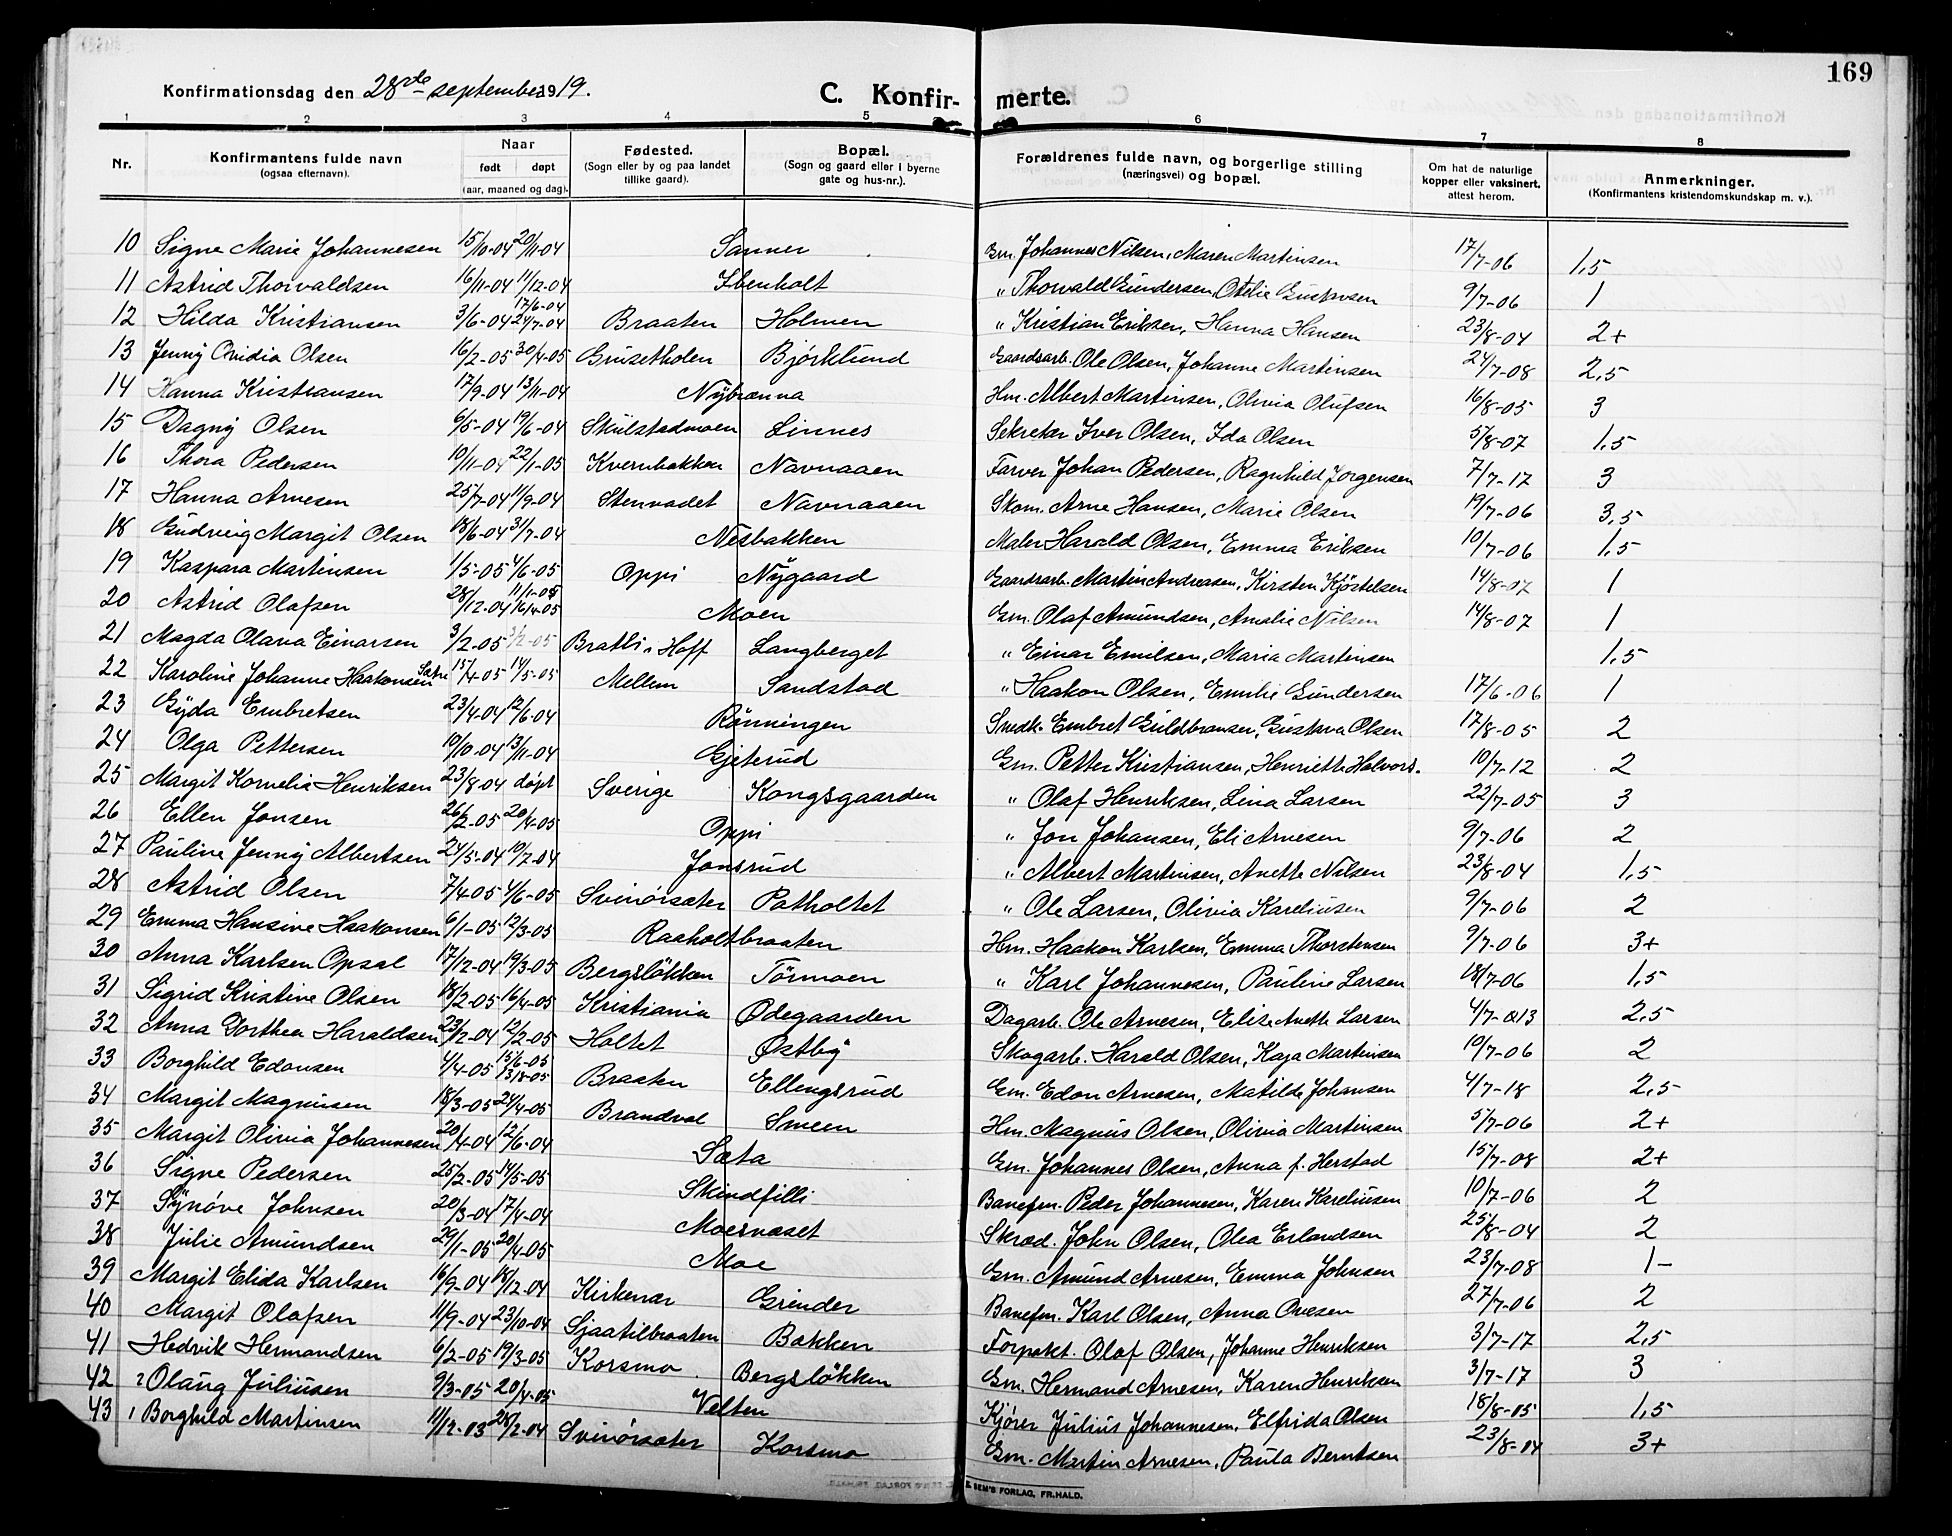 169
Konfirmationsdag den 28de september 1919.
C. Konfirmerte.
1 2 3 4 5 6 7 8
Nr. Konfirmantens fulde navn (ogsaa efternavn). Naar født døpt (aar, maaned og dag). Fødested. (Sogn eller by og paa landet tillike gaard). Bopæl. (Sogn og gaard eller i byerne gate og hus-nr.). Forældrenes fulde navn, og borgerlige stilling (næringsvei) og bopæl. Om hat de naturlige kopper eller vaksinert, attest herom. Anmerkninger. (Konfirmantens kristendomskundskap m. v.).
10 Signe Marie Johannesen 15/10-04 20/11-04 Sanner Gm. Johannes Nilsen, Maren Martinsen 17/7-06 1,5
11 Astrid Thorvaldsen 16/11-04 11/12-04 Ibenholt " Thorvald Gundersen, Otilie Gustavsen 9/7-06 1
12 Hilda Kristiansen 3/6-04 17/6-04 24/7-04 Braaten Holmen " Kristian Eriksen, Hanna Hansen 23/8-04 2+
13 Jenny Ovidia Olsen 16/2-05 30/4-05 Grusetholen Bjórklund Gaardsarb. Ole Olsen, Johanne Martinsen 24/7-08 2,5
14 Hanna Kristiansen 17/9-04 13/11-04 Nybrænna Hm. Albert Martinsen, Olivia Olufsen 16/8-05 3
15 Dagny Olsen 6/5-04 19/6-04 Skulstadmoen Linnes Sekretær Iver Olsen, Ida Olsen 5/8-07 1,5
16 Thora Pedersen 10/11-04 22/1-05 Kvernbakken Navnaaen Farver Johan Pedersen, Ragnhild Jorgensen 7/7-17 3
17 Hanna Arnesen 25/7-04 11/9-04 Stenvadet Navnaaen Skom. Arne Hansen, Marie Olsen 19/7-06 3,5
18 Gudveig Margit Olsen 18/6-04 31/7-04 Nesbakken Maler Harald Olsen, Emma Eriksen 10/7-06 1,5
19 Kaspara Martinsen 1/5-05 4/6-05 Oppi Nygaard Gaardsarb. Martin Andreasen, Kirsten Kjöstelsen 14/8-07 1
20 Astrid Olafsen 28/12-04 11/1-05 16/4-05 Moen Gm. Olaf Amundsen, Amalie Nilsen 14/8-07 1
21 Magda Olava Einarsen 3/2-05 3/2-05 Bratli i Hoff Langberget " Einar Emilsen, Maria Martinsen 1,5
22 Karoline Johanne Haakonsen Sætre 15/4-05 14/5-05 Mellem Sandstad " Haakon Olsen, Emilie Gundersen 17/6-06 1
23 Gyda Embretsen 23/4-04 12/6-04 Rönningen Smedk. Embret Guldbransen, Gustava Olsen 17/8-05 2
24 Olga Pettersen 19/10-04 13/11-04 Gjeterud Gm. Petter Kristiansen, Henriette Halvors. 10/7-12 2
25 Margit Kornelia Henriksen 23/8-04 döpt Sverige Kongsgaarden " Olaf Henriksen, Lina Larsen 22/7-05 3
26 Ellen Jonsen 26/2-05 20/4-05 Oppi " Jon Johansen, Eli Arnesen 9/7-06 2
27 Pauline Jenny Albertsen 24/5-04 10/7-04 Jonsrud " Albert Martinsen, Anette Nilsen 23/8-04 1,5
28 Astrid Olsen 7/4-05 4/6-05 Svinörsæter Patholtet " Ole Larsen, Olivia Kareliusen 9/7-06 2
29 Emma Hansine Haakonsen 6/1-05 12/3-05 Raaholtbraaten Hm. Haakon Karlsen, Emma Thorstensen 9/7-06 3+
30 Anna Karlsen Opsal 17/12-04 19/3-05 Bergslökken Törmoen " Karl Johannesen, Pauline Larsen 18/7-06 1,5
31 Sigrid Kristine Olsen 18/2-05 16/4-05 Kristiania Ödegaarden Dagarb. Ole Arnesen, Elise Anette Larsen 4/7-13 2,5
32 Anna Dorthea Haraldsen 23/12-04 12/2-05 Holtet Östby Skogarb. Harald Olsen, Kaja Martinsen 19/7-06 2
33 Borghild Edonsen 4/4-05 15/6-05 13/8-05 Braaten Ellengsrud Gm. Edon Arnesen, Matilde Johansen 4/7-18 2,5
34 Margit Magnusen 18/3-05 24/4-05 Brandval Smeen Hm. Magnus Olsen, Olivia Martinsen 5/7-06 2+
35 Margit Olivia Johannesen 20/4-04 12/6-04 Sæta Gm. Johannes Olsen, Anna f. Herstad 15/7-08 2+
36 Signe Pedersen 25/2-05 14/5-05 Skindfilli Banefm. Peder Johannesen, Karen Kareliusen 10/7-06 2
37 Synöve Johnsen 20/3-04 17/4-04 Moesvaset Skræd. John Olsen, Olea Erlandsen 25/8-04 2
38 Julie Amundsen 29/1-05 20/4-05 Moe Gm. Amund Arnesen, Emma Johnsen 23/7-08 1-
39 Margit Elida Karlsen 16/9-04 18/12-04 Kirkenær Grinder Banefm. Karl Olsen, Anna Ovesen 27/7-06 2
40 Margit Olafsen 11/9-04 23/10-04 Sjaatilbraaten Bakken Forpakt. Olaf Olsen, Johanne Henriksen 3/7-17 2,5
41 Hedvik Hermandsen 6/2-05 19/3-05 Korsmo Bergslökken Gm. Hermand Arnesen, Karen Henriksen 3/7-17 3
42 2 Olaug Juliusen 9/3-05 20/4-05 Velten Kjörer Julius Johannesen, Elfrida Olsen 18/8-05 1,5
43 1 Borghild Martinsen 11/12-03 28/2-04 Svinörsæter Korsmo Gm. Martin Arnesen, Paula Berntsen 23/8-04 3+
SEM'S FORLAG, FR.HALD.